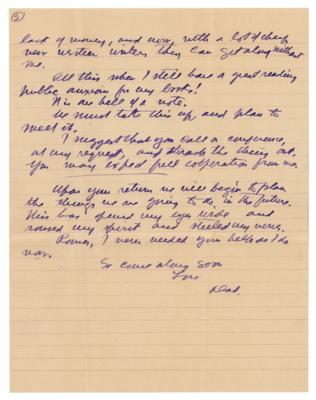 (5)
lack of money, and now, with a lot of cheap
new western writers they can get along without
me.
All this when I still have a great reading
public anxious for my books!
This one hell of a note.
We must take this up and plan to
meet it.
I suggest that you call a conference,
at my request, and thrash the thing out.
You may expect full cooperation from me.
Upon your return we will begin to plan
the things we are going to do in the future.
This has opened my eyes wide and
roused my spirit and steeled my nerve.
Romer, I never needed your help as I do
now.
So come along soon
Love
Dad.